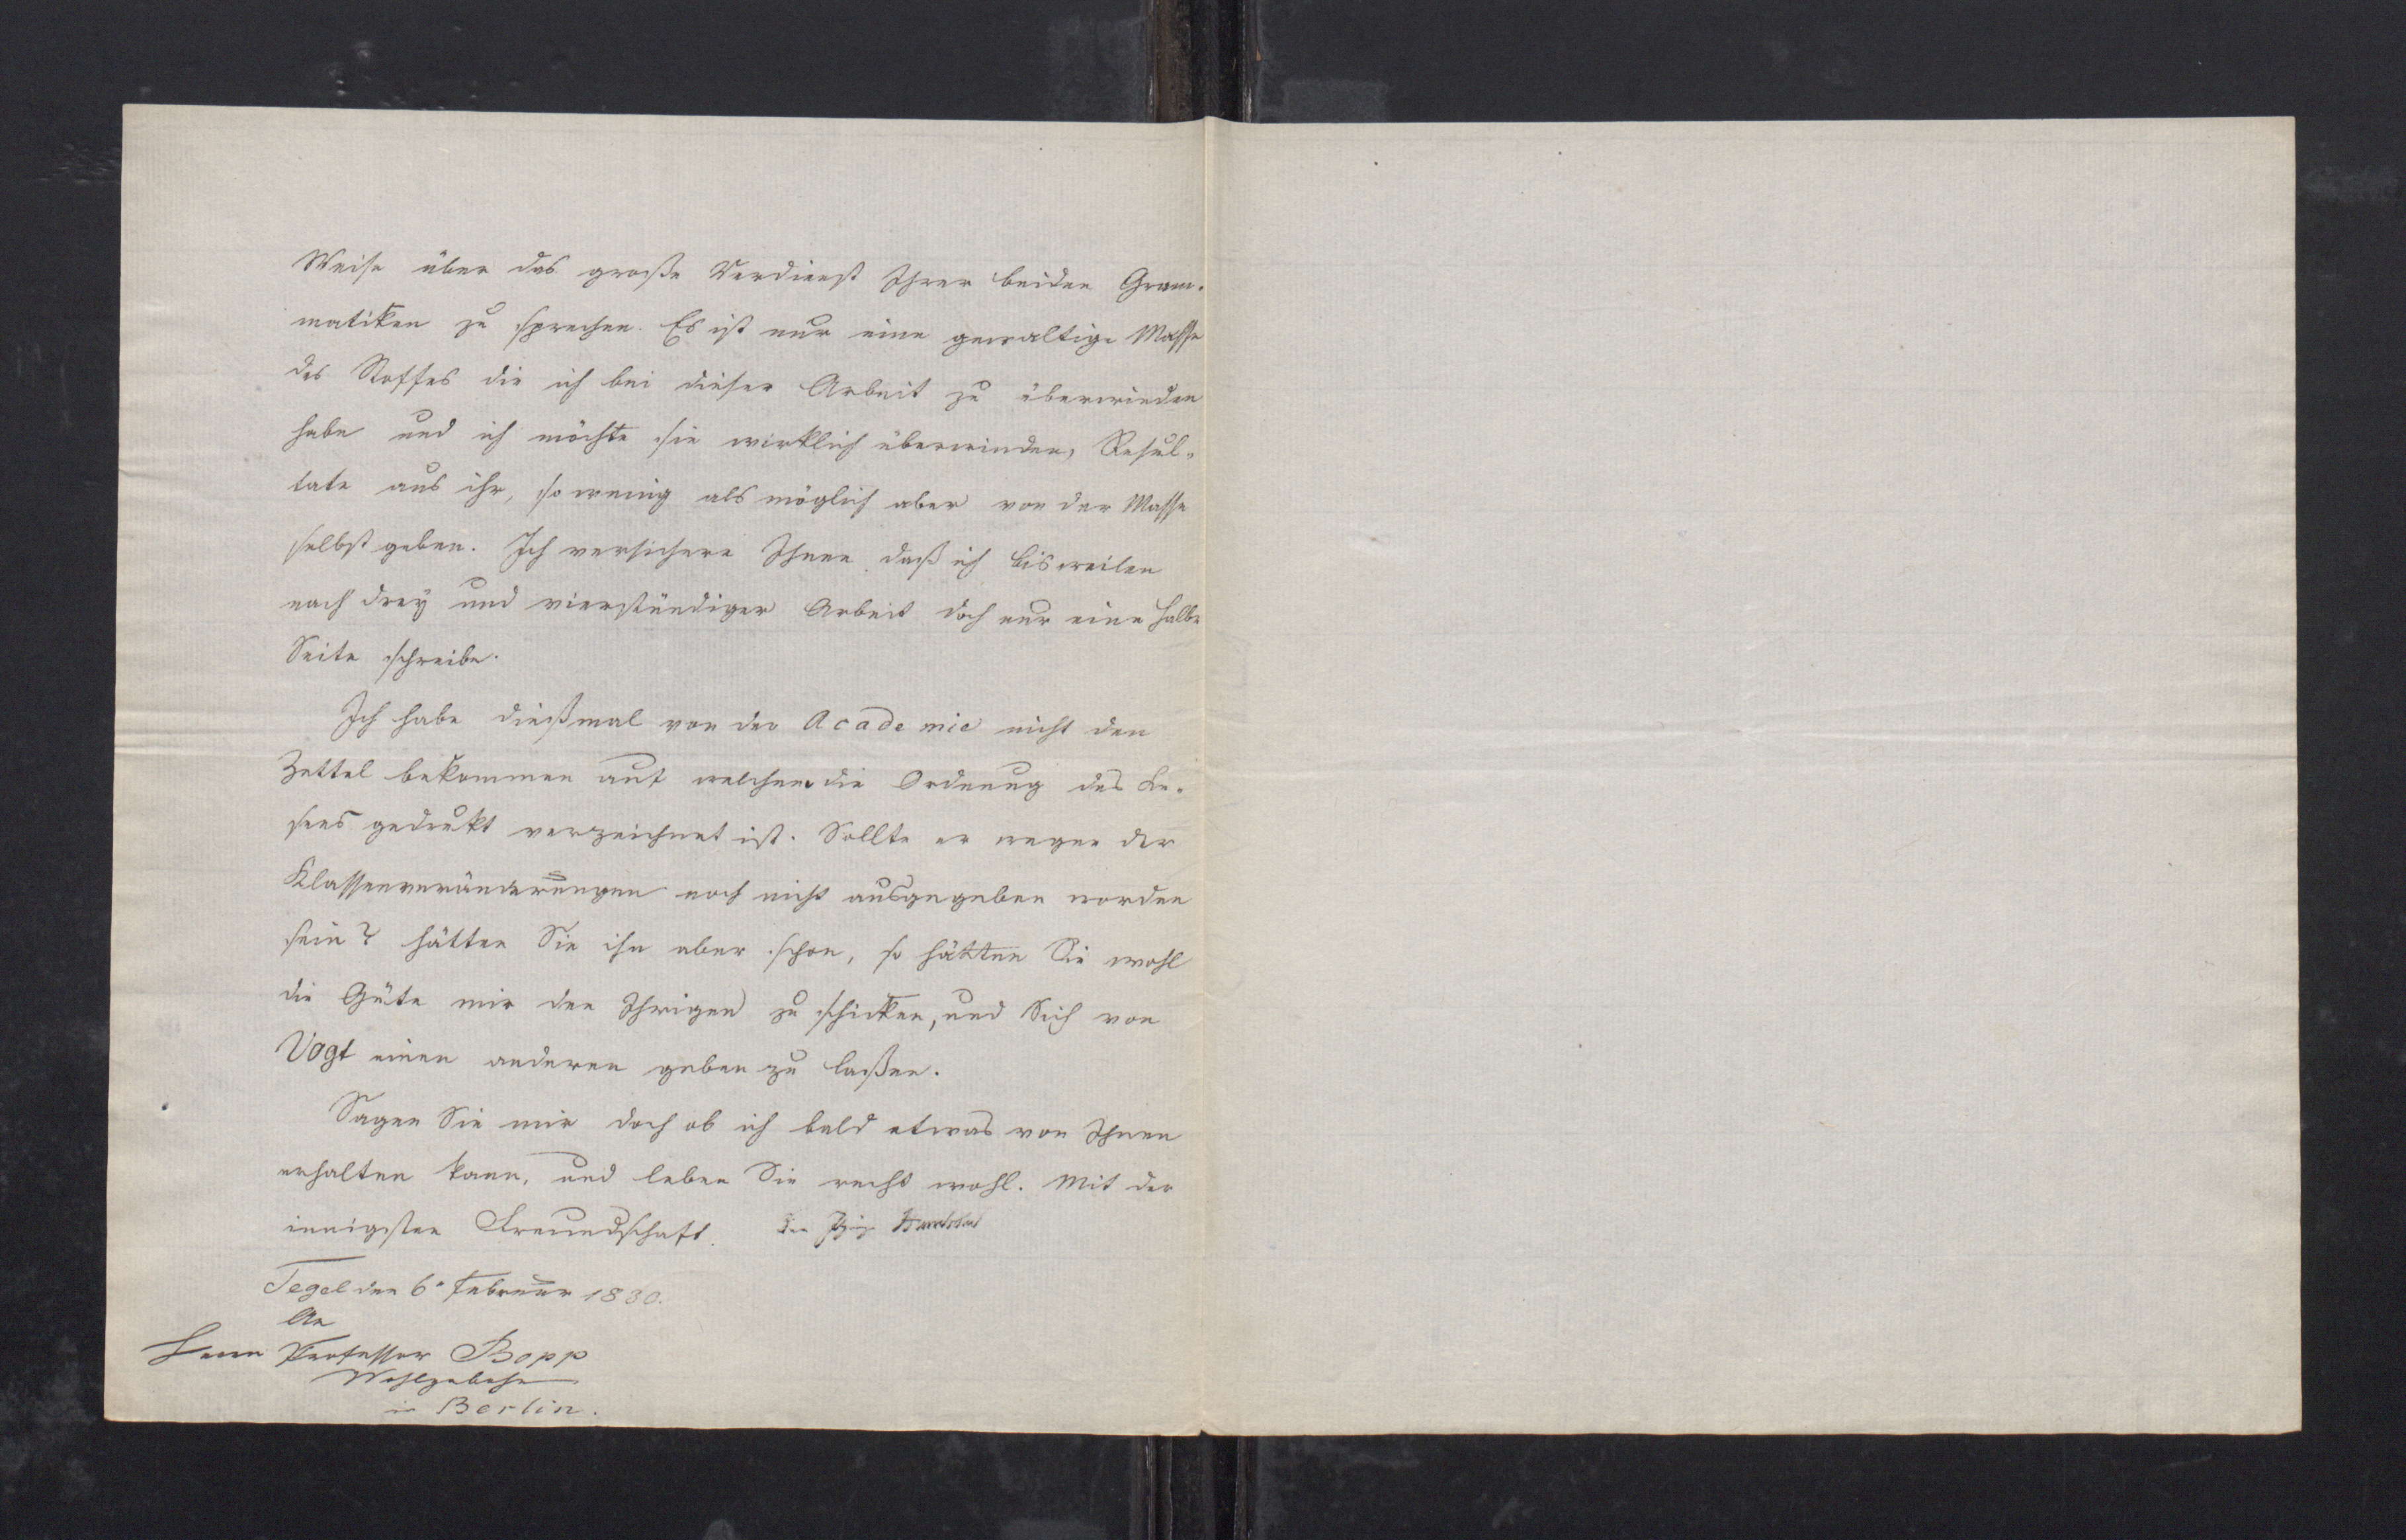 Weise über das große Verdienst Ihrer beiden Gram-
matiken zu sprechen. Es ist nur eine gewaltige Masse
des Stoffes die ich bei dieser Arbeit zu überwinden
habe und ich möchte sie wirklich überwinden, Resul-
tate aus ihr, so wenig als möglich aber von der Masse
selbst geben. Ich versichere Ihnen daß ich bisweilen
nach drey und vierstündiger Arbeit doch nur eine halbe
Seite schreibe.
Ich habe dießmal von der Academie nicht den
Zettel bekommen auf welchem die Ordnung des Le-
sens gedrukt verzeichnet ist. Sollte er wegen der
Klassenveränderungen noch nicht ausgegeben worden
sein? hätten Sie ihn aber schon, so hätten Sie wohl
die Güte mir den Ihrigen zu schicken, und Sich von
Vogt einen anderen geben zu laßen.
Sagen Sie mir doch ob ich bald etwas von Ihnen
erhalten kann, und leben Sie recht wohl. Mit der
innigsten Freundschaft. der Ihrige Humboldt
Tegel den 6n Februar 1830.
An
Herrn Professor Bopp
Wohlgeboren
in Berlin.